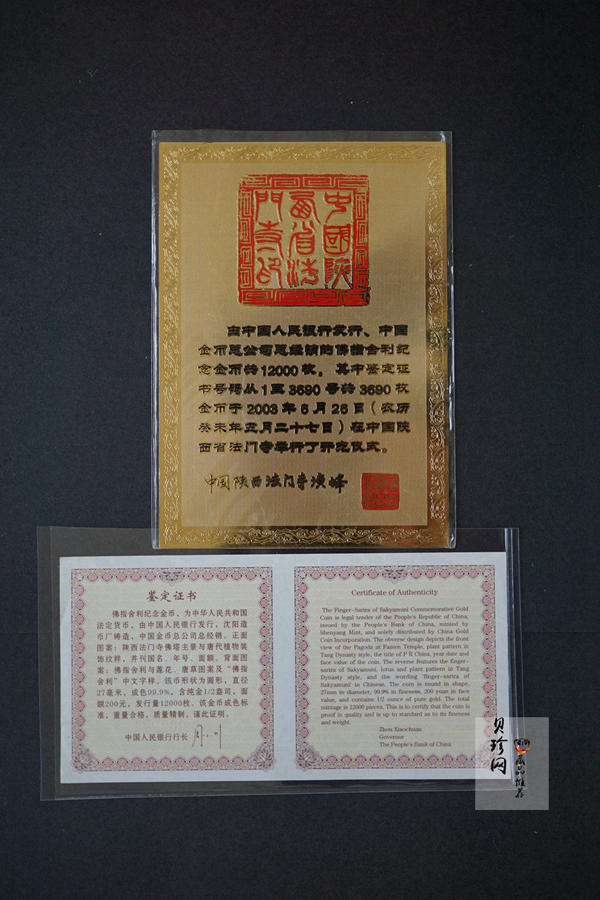 中國陝
西省法
門寺印
由中国人民银行发行、中国
金币总公司总经销的佛指舍利纪
念金币共12000枚。其中鉴定证
书号码从1至3690号共3690枚
金币于2003年6月26日(农历
癸未年五月二十七日)在中国陕
西省法门寺举行了开光仪式。
中国陕西法门寺
鉴定证书
佛指舍利纪念金币,为中华人民共和国
法定货币,由中国人民银行发行,沈阳造
币厂铸造,中国金币总公司总经销。正面
图案:陕西法门寺佛塔主景与唐代植物装
饰纹样,并刊国名、年号、面额。背面图
案:佛指舍利与莲花、唐草图案及“佛指
舍利”中文字样。该币形状为圆形,直径
27毫米,成色99.9%,含纯金1/2盎司,面
额200元,发行量12000枚。该金币成色标
准,重量合格,质量精制,谨此证明。
中国人民银行行长
Certificate of Authenticity
The Finger-Sarira of Sakyamuni Commemorative Gold
Coin is legal tender of the People's Republic of China,
issued by the People's Bank of China, minted by
Shenyang Mint, and solely distributed by China Gold
Coin Incorporation. The obverse design depicts the front
view of the Pagoda at Famen Temple, plant pattern in
Tang Dynasty style, the title of P R China, year date and
face value of the coin. The reverse features the finger-
sarira of Sakyamuni, lotus and plant pattern in Tang
Dynasty style, and the wording 'finger-sarira of
Sakyamuni' in Chinese. The coin is round in shape,
27mm in diameter, 99.9% in fineness, 200 yuan in face
value, and contains 1/2 ounce of pure gold. The total
mintage is 12000 pieces. This is to certify that the coin is
proof in quality and is up to standard as to its fineness
and weight.
Zhou Xiaochuan
Governor
The People's Bank of China
贝珍网
藏品推荐